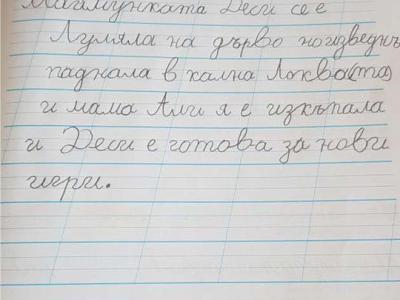 Маймунката Деси се е
Лумяла на дърво но изведнъ
паднала в кална Локва(та)
и мама Ами я е изкъпала
и Деси е готова за нови
игри.